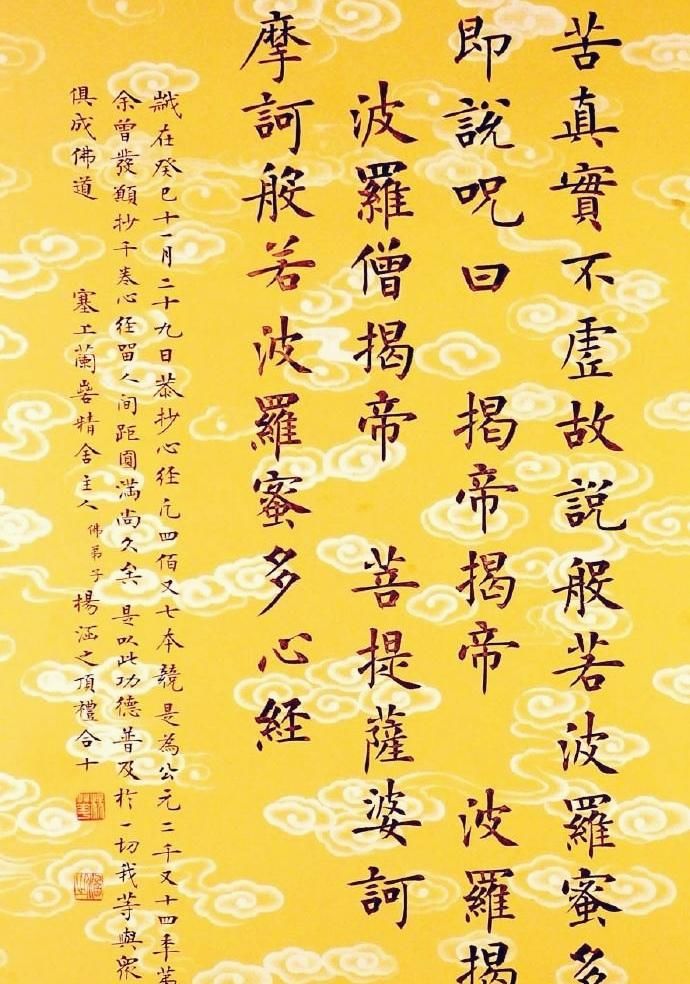 苦真實不虛故說般若波羅蜜多
即說呪曰 揭帝揭帝 波羅揭
波羅僧揭帝 菩提薩婆訶
摩訶般若波羅蜜多心経
歲在癸巳十一月二十九日恭抄心経凡四佰又七本競是為公元二千又十四季第
余曾發願抄千卷心経留人間距圓滿尚久矣是以此功德普及於一切我等與眾
俱成佛道 塞上蘭精舍主人 佛弟子 楊涵之頂禮合十